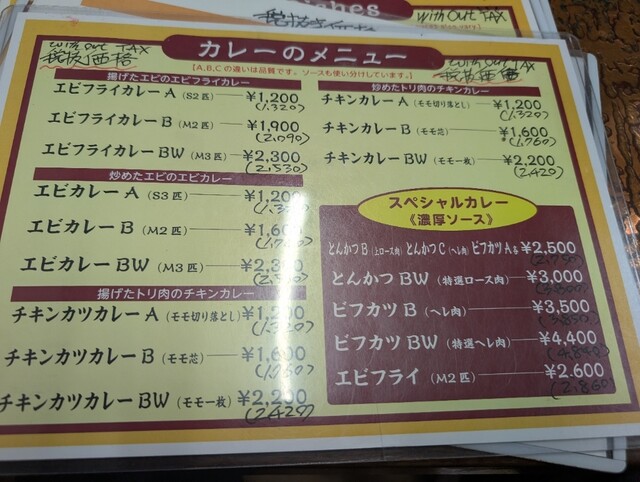 with out TAX
with out TAX
税抜価格
カレーのメニュー
【A,B,Cの違いは品質です。ソースも使い分けしています。】
with out TAX
税抜価格
揚げたエビのエビフライカレー
エビフライカレー A (S2匹) ¥1,200
(1,320)
エビフライカレー B (M2匹) ¥1,900
(2,090)
エビフライカレー BW (M3匹) ¥2,300
(2,530)
炒めたエビのエビカレー
エビカレー A (S3匹) ¥1,200
エビカレー B (M2匹) ¥1,600
(1,760)
エビカレー BW (M3匹) ¥2,300
揚げたトリ肉のチキンカレー
チキンカツカレー A (モモ切り落とし) ¥1,200
(1,320)
チキンカツカレー B (モモ芯) ¥1,600
(1,760)
チキンカツカレー BW (モモ一枚) ¥2,200
(2,420)
炒めたトリ肉のチキンカレー
チキンカレー A (モモ切り落とし) ¥1,200
(1,320)
チキンカレー B (モモ芯) ¥1,600
(1,760)
チキンカレー BW (モモ一枚) ¥2,200
(2,420)
スペシャルカレー
《濃厚ソース》
とんかつB (上ロース肉) とんかつC (ヘレ肉) ビフカツA 各 ¥2,500
(2,750)
とんかつ BW (特選ロース肉) ¥3,000
ビフカツ B (ヘレ肉) ¥3,500
ビフカツ BW (特選ヘレ肉) ¥4,400
(4,840)
エビフライ (M2匹) ¥2,600
(2,860)